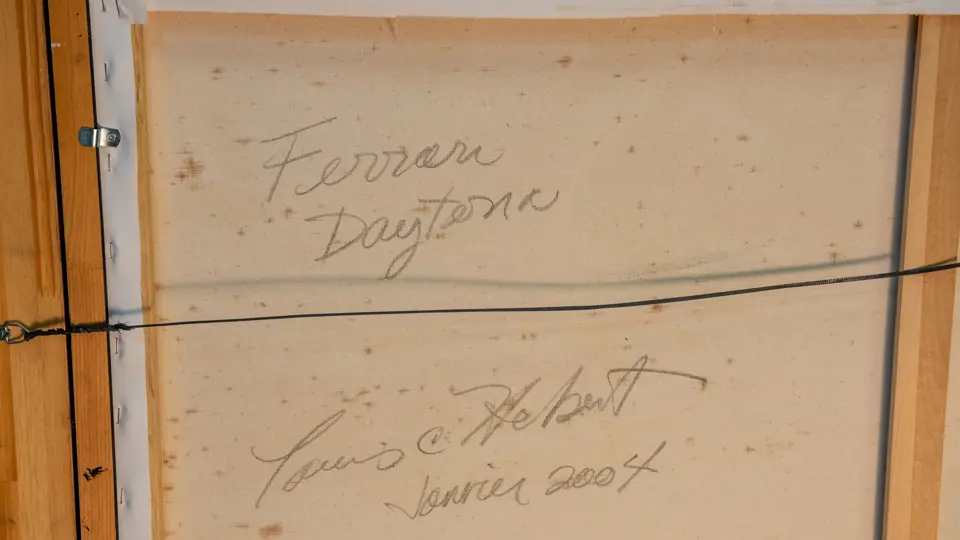 Ferrari
Daytona
Louis C Hebert
Janvier 2004